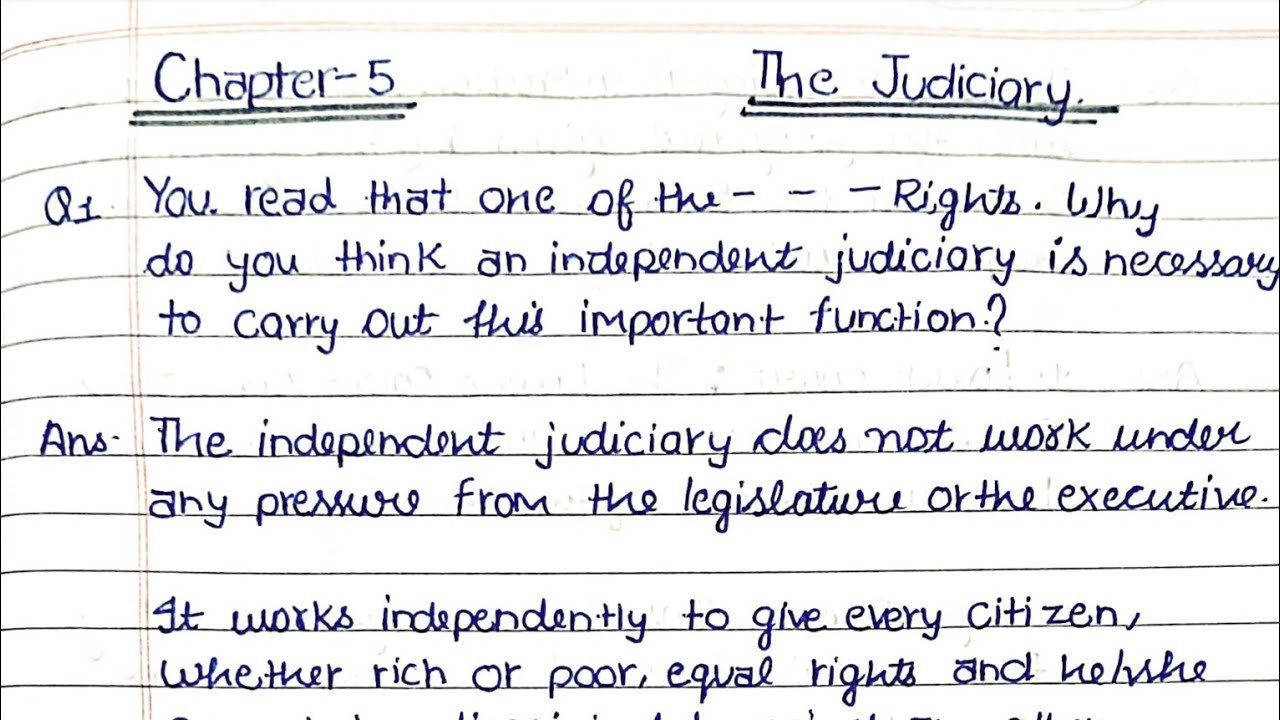 Chapter-5 The Judiciary.
Q1. You read that one of the - - - Rights. Why
do you think an independent judiciary is necessary
to carry out this important function?
Ans. The independent judiciary does not work under
any pressure from the legislature or the executive.
It works independently to give every citizen,
whether rich or poor, equal rights and he/she